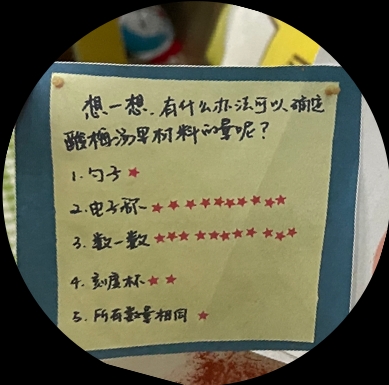 想一想，有什么办法可以确定
酸梅汤里材料的量呢？
1.勺子
2.电子秤
3.数一数
4.刻度杯
5.所有数量相同